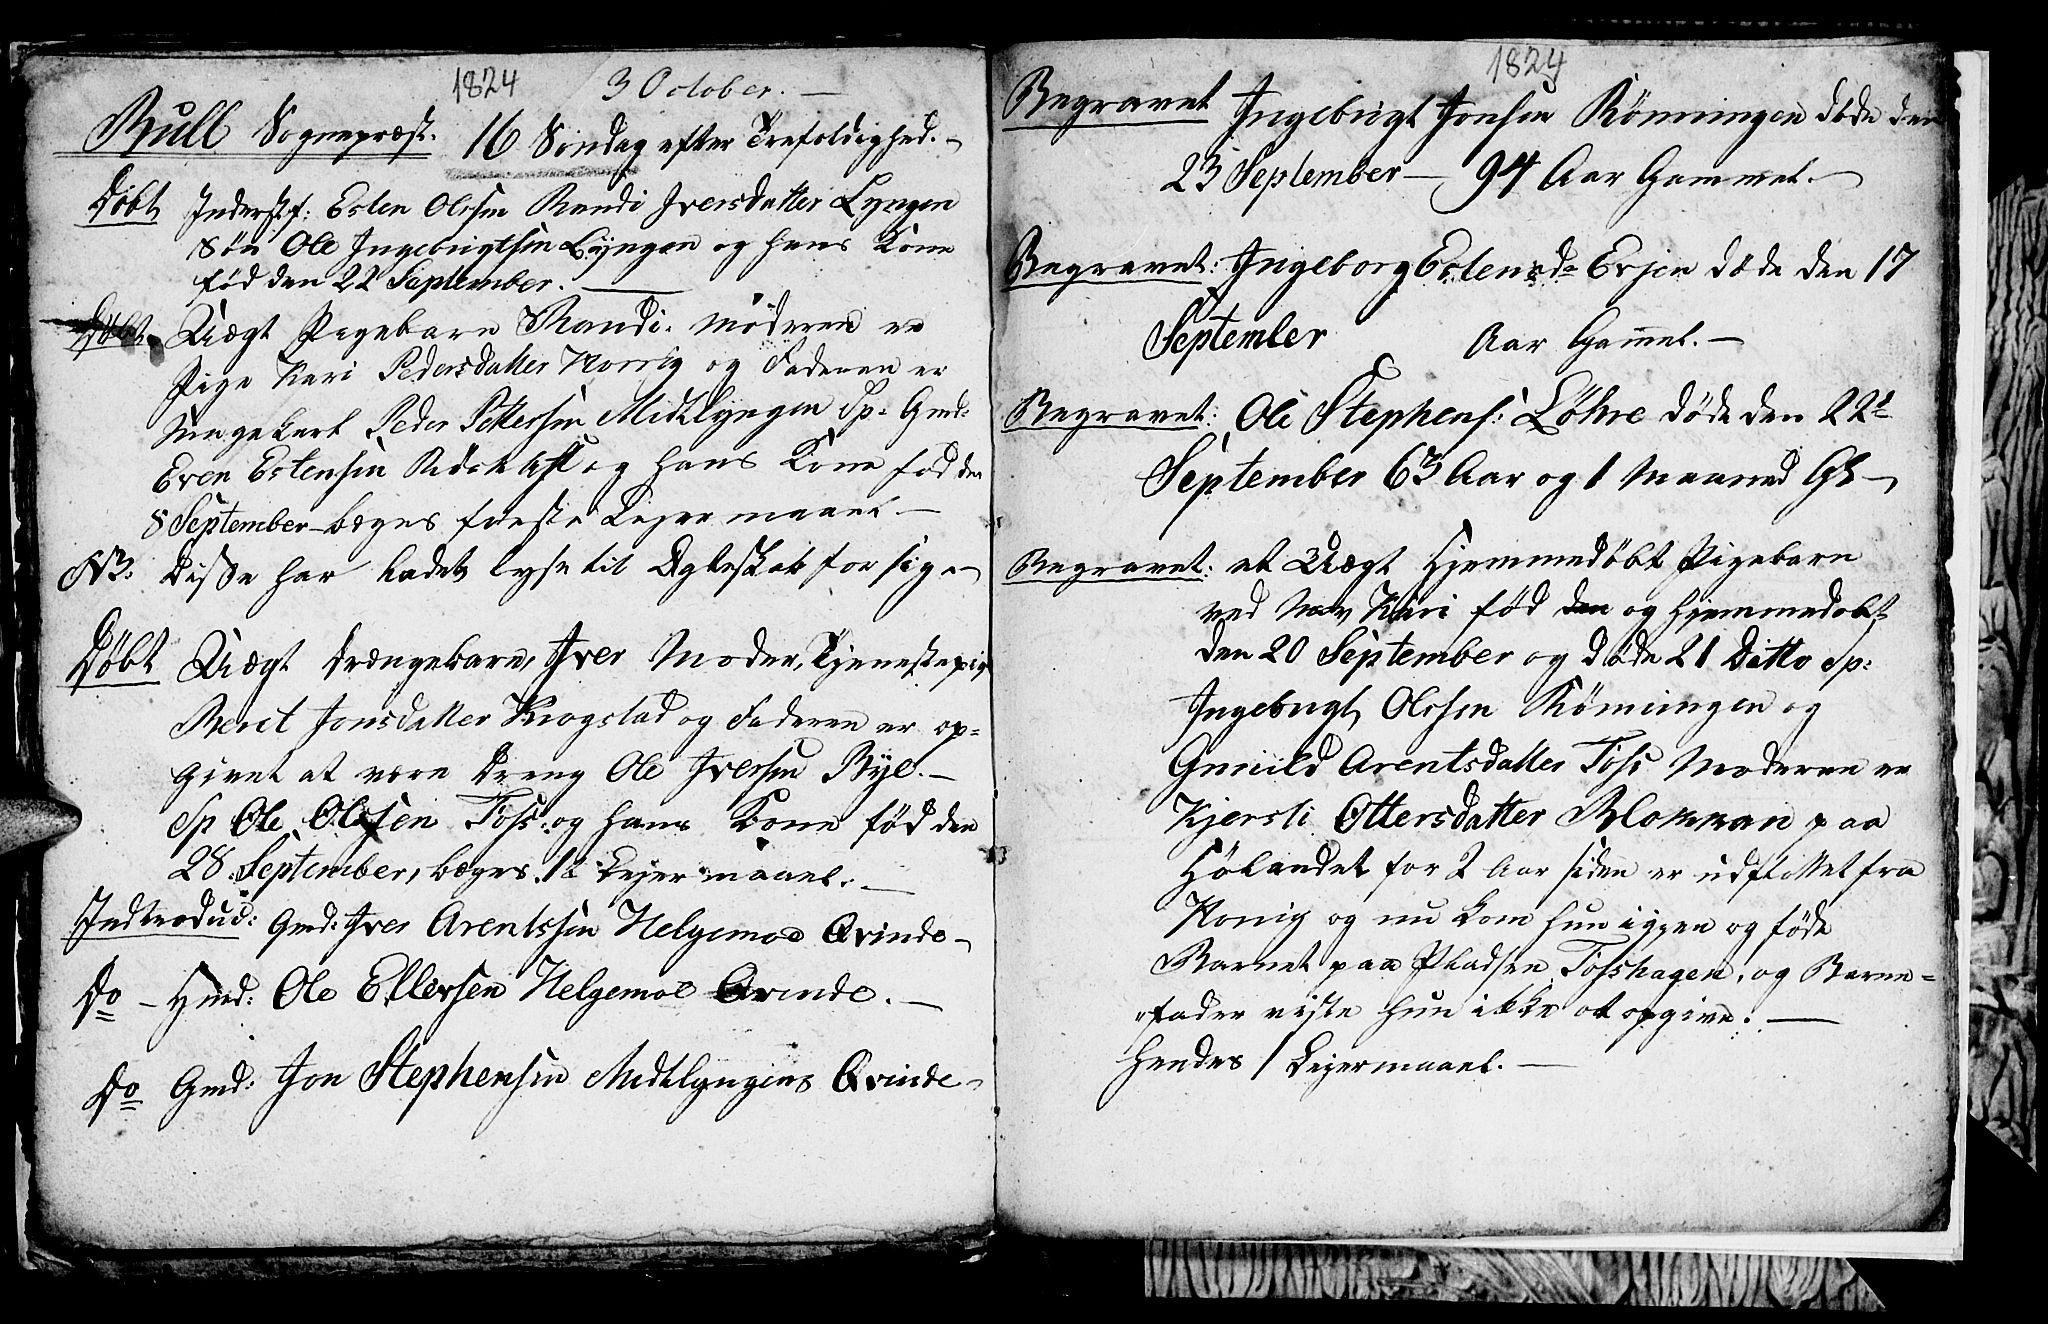 1824 3 October. —
Bull Sognepræst. 16 Søndag efter Trefoldighed. —
Døbt Inderstf: Esten Olssen Randi Iversdatter Lyngen
Søn Ole Ingebrigtsen Lÿngen og hans Kone
fød den 22 September. —
Døbt Uægt Pigebarn Randi. Moderen er
Pige Kari Pedersdatter Horrig og Faderen er
Ungekarl Peder Pettersen Midtlyngen Sp. Gmd:
Even Estensen og hans Kone fød den
8 September begges første Lejermaael —
NB: Disse har ladet lyse til Ægteskab for sig —
Døbt Uægt Drængebarn, Iver Moder, Tjenestepig
Beret Jonsdatter Krogstad og Faderen er op=
givet at være Dreng Ole Iversen Bÿe. —
Sp Ole Olesen Foss: og hans Kone fød den
28 September, begges 1te Lejermaael. —
Indtroduc: Gmd: Iver Arentssen Helgemoe Qvinde —
Do — Hmd: Ole Ellersen Helgemoe Qvinde. —
Do Gmd: Jon Stephensen Midtlyngens Qvinde —
1824
Begravet Ingebrigt Jonsen Rønningen døde den
23 September — 94 Aar Gammel. —
Begravet: Ingeborg Estensdr Evjen døde den 17
September Aar Gamel. —
Begravet: Ole Stephens: Løhre døde den 22d
September 63 Aar og 1 Maaned Gl —
Begravet: et Uægt Hjemmedøbt Pigebarn
ved Nav Kari fød den og hjemmedøbt
den 20 September og døde 21 Ditto Sp:
Ingebrigt Olssen Rønningen og
Gunild Arentsdatter Foss Moderen er
Kjersti Ottersdatter Blokkan paa
Hølandet for 2 Aar siden er udflöttet fra
Horrig og nu kom hun igjen og føde
Barnet paa Pladsen Fosshagen, og Barne=
"fader viste hun ikke at opgive: —
hendes 1 Lejermaael. —